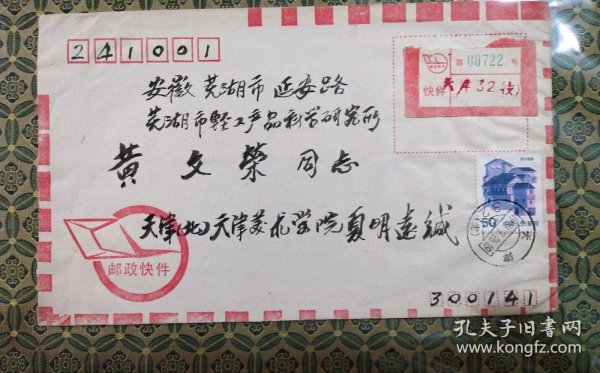 241001
第 00722 号
快件 天津32(支)
安徽 芜湖市 延安路
芜湖市轻工产品科学研究所
黄文荣 同志
50
天津(北)天津美术学院 夏明远 缄
邮政快件
300141
孔夫子旧书网
www.kongfz.com